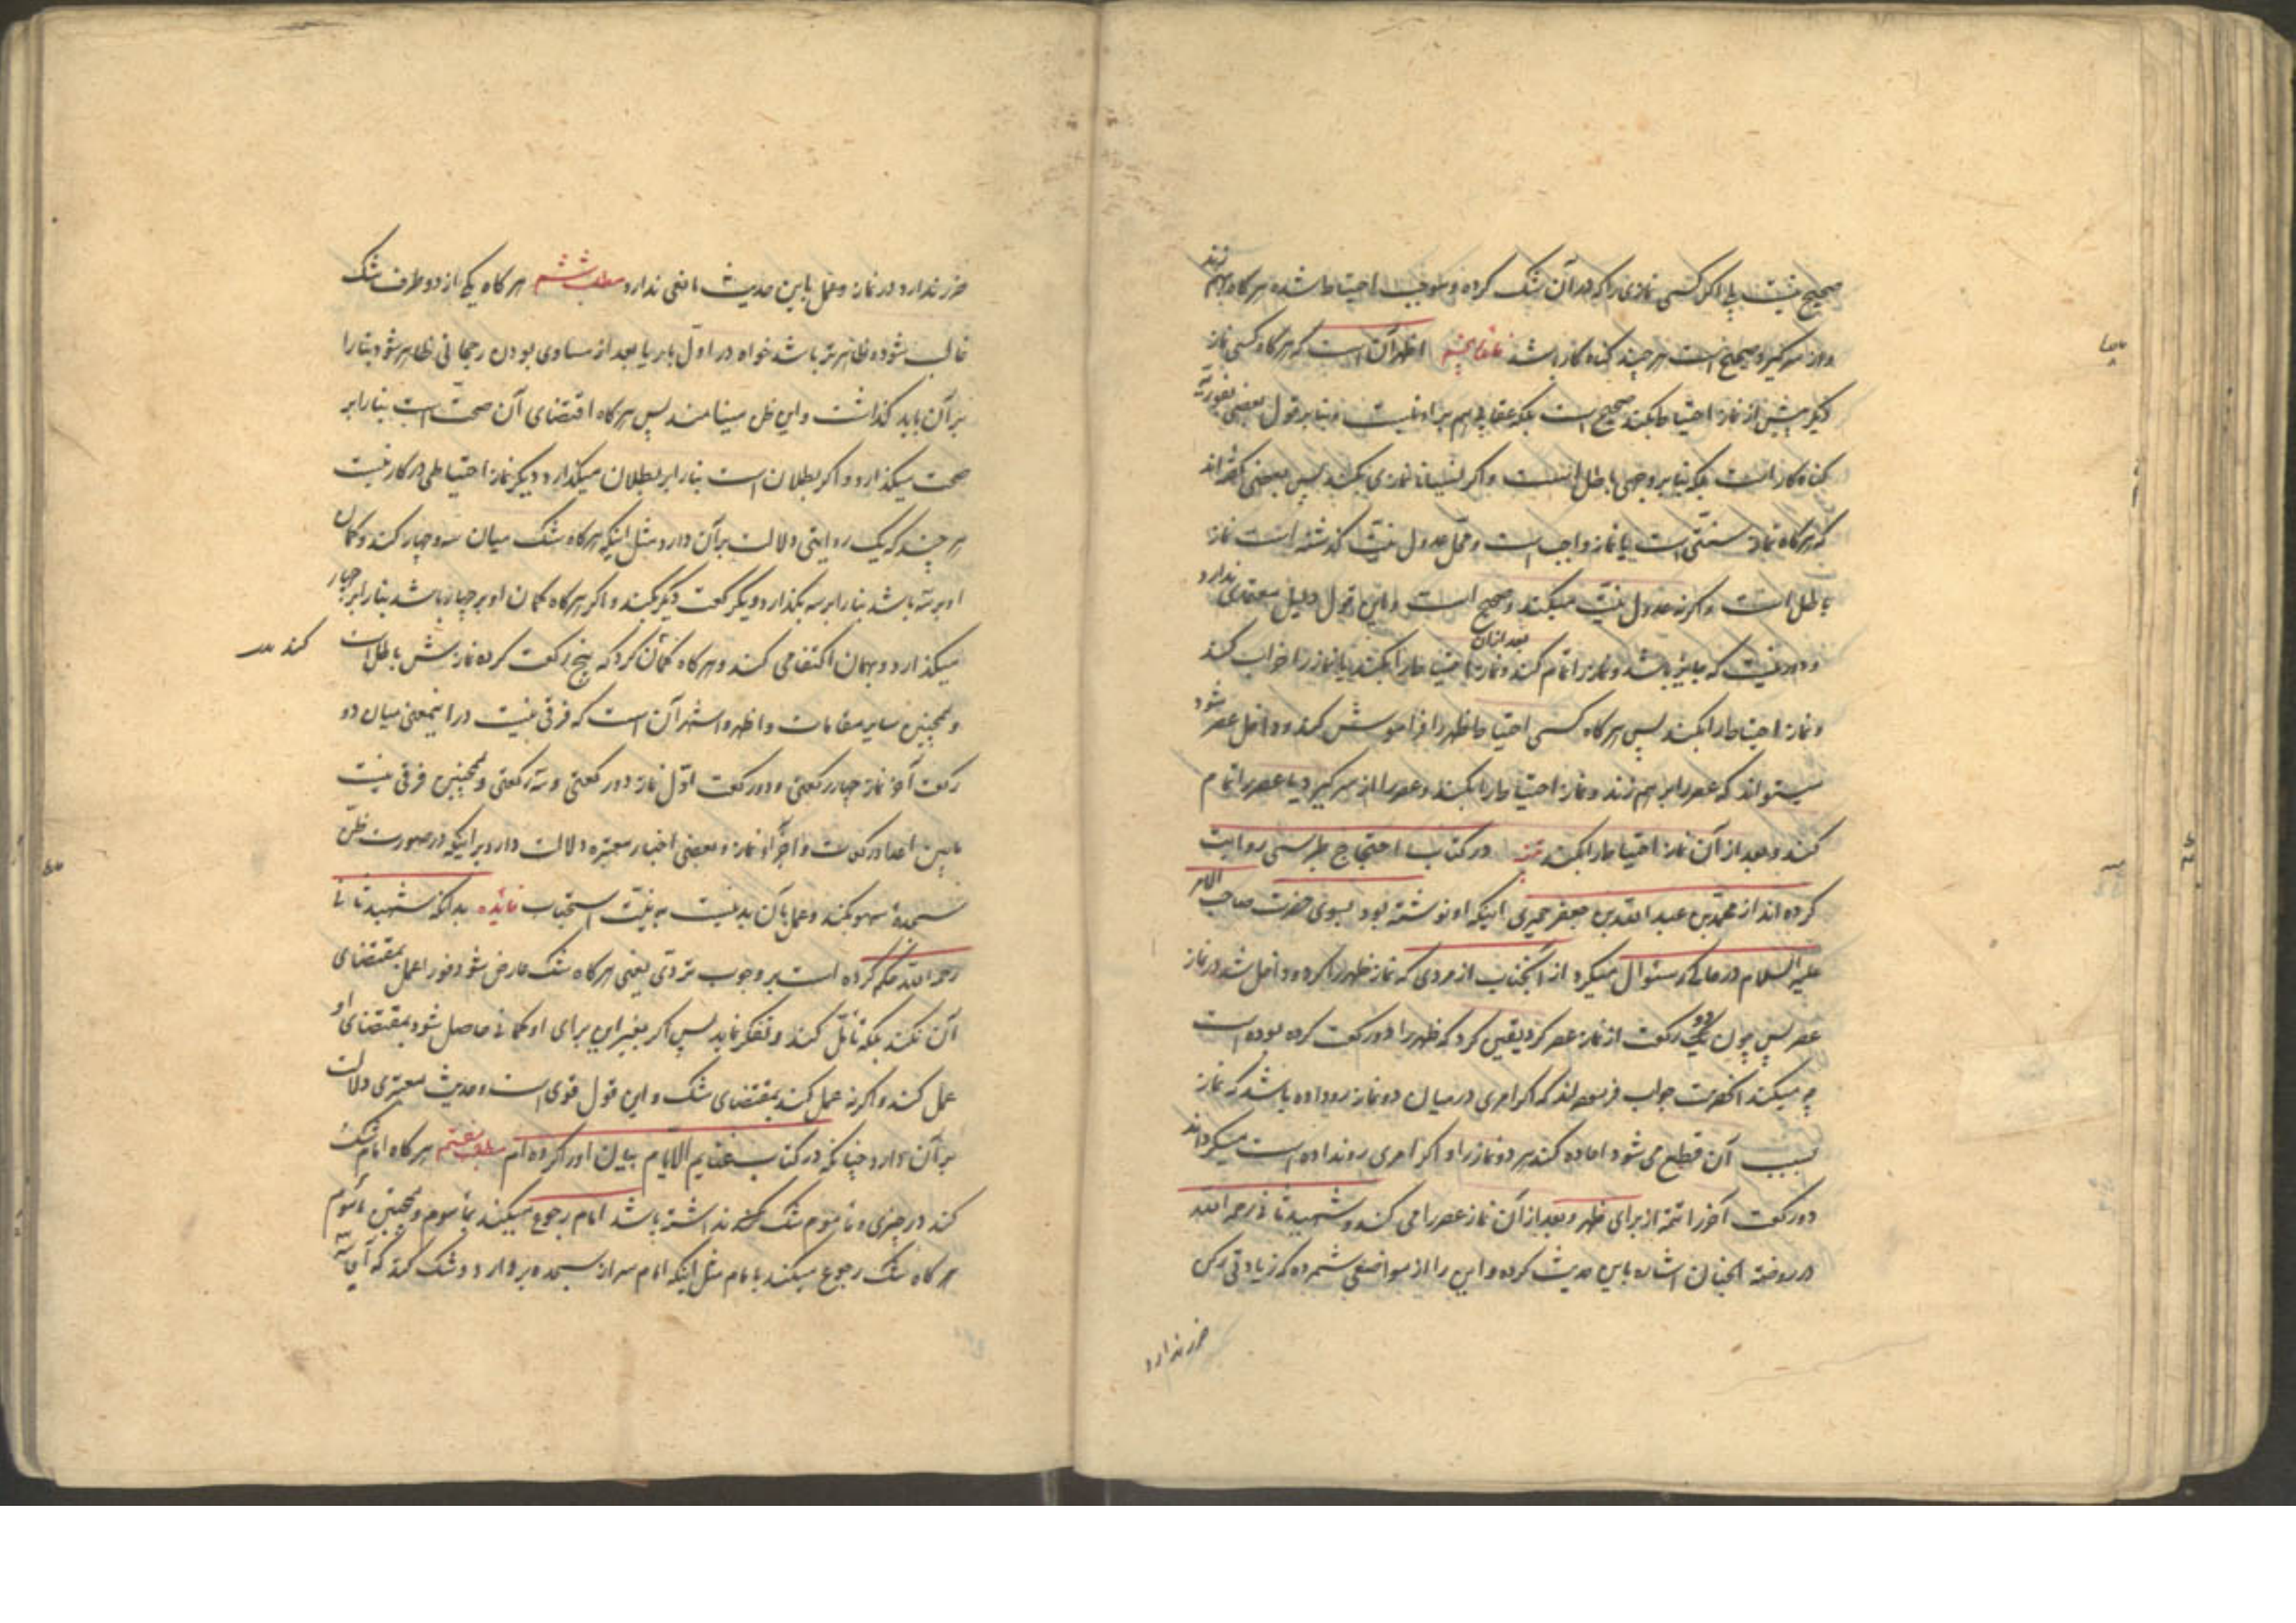 صحیح نیست بلی اگر کسی نمازی را که در آن شک کرده و موجب احتیاط شده هرگاه برهم زند
و از سر گیرد صحیح است هر چند گناه کار باشد اظهر آن است که هرگاه کسی نماز
دیگر پیش از نماز احتیاط بکند صحیح است بلکه عقابی هم بر او نیست و بنا بر قول بعضی فوریت
گناه کار است بلکه بنا بر وجهی باطل است و اگر نسیانا نمازی بکند پس بعضی گفته‌اند
که هرگاه نماز سنتی است یا نماز واجب است و محل عدول نیت گذشته است نماز
باطل است و اگر نه عدول نیت میکند و صحیح است و این قول دلیل معتمدی ندارد
و دور نیست که جایز باشد و نماز را تمام کند و بعد از آن نماز احتیاط را بکند یا نماز را خراب کند
و نماز احتیاط را بکند پس هرگاه کسی احتیاط ظهر را فراموش کند و داخل عصر شود
میتواند که عصر را بر هم زند و نماز احتیاط را بکند و عصر را از سر گیرد یا عصر را تمام
کند و بعد از آن نماز احتیاط را بکند در کتاب احتجاج طبرسی روایت
کرده اند از محمد بن عبد الله بن جعفر حمیری اینکه او نوشته بود بسوی حضرت صاحب الامر
علیه السلام در حالی که سئوال میکرد از آنجناب از مردی که نماز ظهر را کرده و داخل شد در نماز
عصر پس چون دو رکعت از نماز عصر کرد یقین کرد که ظهر را دو رکعت کرده بوده است
چه میکند آنحضرت جواب فرموده‌اند که اگر امری در میان دو نماز رو داده باشد که نماز
بسبب آن قطع می شود اعاده کند هر دو نماز را و اگر امری رو نداده است میگرداند
دو رکعت آخر را تتمه از برای ظهر و بعد از آن نماز عصر را می کند و شهید ثانی رحمه الله
در روضة الجنان اشاره باین حدیث کرده و این را از مواضعی شمرده که زیادتی رکن
ضرر ندارد
ضرر ندارد در نماز و عمل باین حدیث مانعی ندارد مطلب ششم هرگاه یکی از دو طرف شک
غالب شود و ظاهرتر باشد خواه در اول بار یا بعد از مساوی بودن رجحانی ظاهر شود بنا را
بر آن باید گذاشت و این ظن مینامند پس هرگاه اقتضای آن صحت است بنا را بر
صحت میگذارد و اگر بطلان است بنا را بر بطلان میگذارد و دیگر نماز احتیاطی در کار نیست
هر چند که یک روایتی دلالت بر آن دارد مثل اینکه هرگاه شک میان سه و چهار کند و گمان
او بر سه باشد بنا را بر سه بگذارد و یک رکعت دیگر بکند و اگر هرگاه گمان او بر چهار باشد بنا را بر چهار
میگذارد و بهمان اکتفا می کند و هرگاه گمان کرد که پنج رکعت کرده نمازش باطل است
و همچنین سایر مقامات و اظهر و اشهر آن است که فرقی نیست در اینمعنی میان دو
رکعت آخر نماز چهار رکعتی و دو رکعت اول نماز دو رکعتی و سه رکعتی و همچنین فرقی نیست
مابین اعداد رکعات و اجزاء نماز و بعضی اخبار معتبره دلالت دارد بر اینکه در صورت ظن
سجدهٔ سهو بکند و عمل بآن بد نیست به نیت استحباب فایده بدانکه شهید ثانی
رحمه الله حکم کرده است بر وجوب تروی یعنی هرگاه شک عارض شود فورا عمل بمقتضای
آن نکند بلکه تأمل کند و تفکر نماید پس اگر بغیر این برای او گمانی حاصل شود بمقتضای او
عمل کند و اگر نه عمل کند بمقتضای شک و این قول قوی است و حدیث معتبری دلالت
بر آن دارد چنانکه در کتاب غنایم الایام بیان او را کرده ام مطلب هفتم هرگاه امام شک
کند در چیزی و مأموم شک نداشته باشد امام رجوع میکند بمأموم و همچنین مأموم
هرگاه شک رجوع میکند بامام مثل اینکه امام سر از سجده بردارد و شک کند که آیا